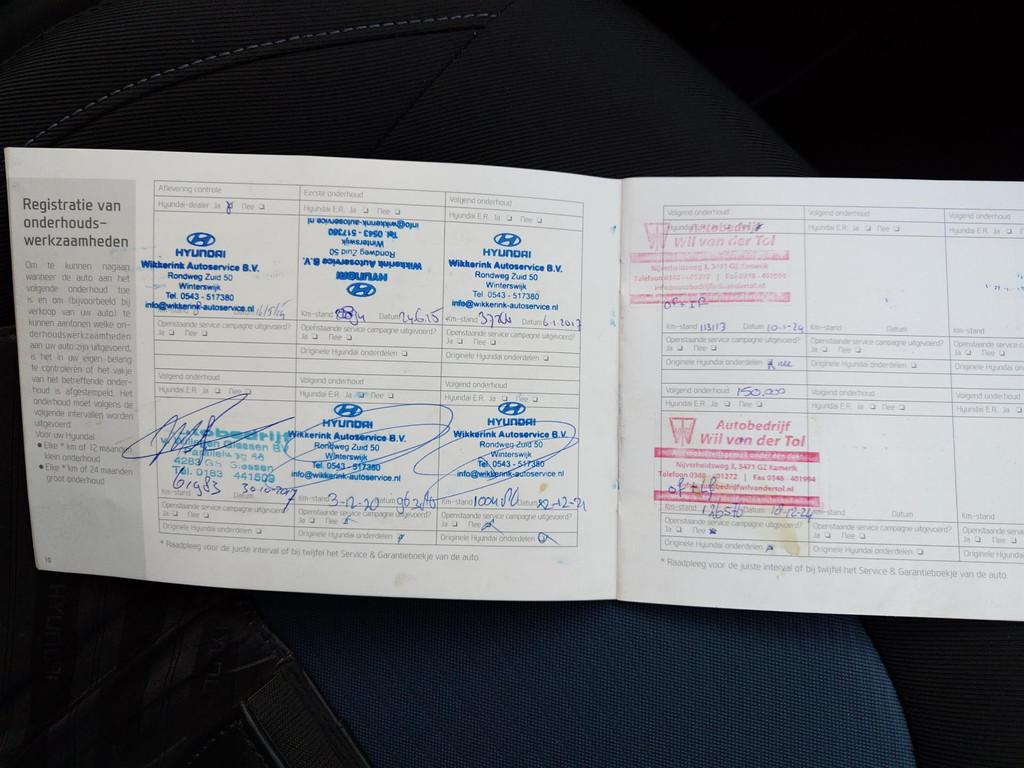 Registratie van
onderhouds-
werkzaamheden
Om te kunnen nagaan
wanneer de auto aan het
volgende onderhoud toe
is en om (bijvoorbeeld bij
verkoop van uw auto) te
kunnen aantonen welke on-
derhoudswerkzaamheden
aan uw auto zijn uitgevoerd,
is het in uw eigen belang
te controleren of het vakje
van het betreffende onder-
houd is afgestempeld. Het
onderhoud moet volgens de
volgende intervallen worden
uitgevoerd
Voor uw Hyundai
• Elke * km of 12 maanden
klein onderhoud
• Elke * km of 24 maanden
groot onderhoud
10
Aflevering controle
Hyundai-dealer Ja Nee
HYUNDAI
Wikkerink Autoservice B.V.
Rondweg Zuid 50
Winterswijk
Tel. 0543 - 517380
info@wikkerink-autoservice.nl
Openstaande service campagne uitgevoerd?
Ja Nee
Eerste onderhoud
Hyundai E.R. Ja Nee
HYUNDAI
Wikkerink Autoservice B.V.
Rondweg Zuid 50
Winterswijk
Tel. 0543 - 517380
info@wikkerink-autoservice.nl
Km-stand Datum
Openstaande service campagne uitgevoerd?
Ja Nee
Originele Hyundai onderdelen
Volgend onderhoud
Hyundai E.R. Ja Nee
HYUNDAI
Wikkerink Autoservice B.V.
Rondweg Zuid 50
Winterswijk
Tel. 0543 - 517380
info@wikkerink-autoservice.nl
Km-stand Datum 6-1-2017
Openstaande service campagne uitgevoerd?
Ja Nee
Originele Hyundai onderdelen
Volgend onderhoud
Hyundai E.R. Ja Nee
Autobedrijf
4283 GS Giessen
Tel. 0183 441509
61983 30-10-2017
Km-stand Datum
Openstaande service campagne uitgevoerd?
Ja Nee
Originele Hyundai onderdelen
Volgend onderhoud
Hyundai E.R. Ja Nee
HYUNDAI
Wikkerink Autoservice B.V.
Rondweg Zuid 50
Winterswijk
Tel. 0543 - 517380
info@wikkerink-autoservice.nl
Km-stand 3-12-20 Datum
Openstaande service campagne uitgevoerd?
Ja Nee
Originele Hyundai onderdelen
Volgend onderhoud
Hyundai E.R. Ja Nee
HYUNDAI
Wikkerink Autoservice B.V.
Rondweg Zuid 50
Winterswijk
Tel. 0543 - 517380
info@wikkerink-autoservice.nl
Km-stand Datum
Openstaande service campagne uitgevoerd?
Ja Nee
Originele Hyundai onderdelen
* Raadpleeg voor de juiste interval of bij twijfel het Service & Garantieboekje van de auto.
Volgend onderhoud
Autobedrijf
Wil van der Tol
Nijverheidsweg 3, 3471 GZ Kamerik
Km-stand Datum
Openstaande service campagne uitgevoerd?
Ja Nee
Originele Hyundai onderdelen
Volgend onderhoud
Hyundai E.R. Ja Nee
Km-stand Datum
Openstaande service campagne uitgevoerd?
Ja Nee
Originele Hyundai onderdelen
Volgend onderhoud
Hyundai E.R. Ja
Km-stand
Openstaande service
Ja Nee
Originele Hyundai
Volgend onderhoud 150.000
Hyundai E.R. Ja Nee
Autobedrijf
Wil van der Tol
Nijverheidsweg 3, 3471 GZ Kamerik
Telefoon 0348 - 401272 | Fax 0348 - 401994
Km-stand Datum
Openstaande service campagne uitgevoerd?
Ja Nee
Originele Hyundai onderdelen
Volgend onderhoud
Hyundai E.R. Ja Nee
Km-stand Datum
Openstaande service campagne uitgevoerd?
Ja Nee
Originele Hyundai onderdelen
Volgend onderhoud
Hyundai E.R. Ja
Km-stand
Openstaande service
Ja Nee
Originele Hyundai
* Raadpleeg voor de juiste interval of bij twijfel het Service & Garantieboekje van de auto.